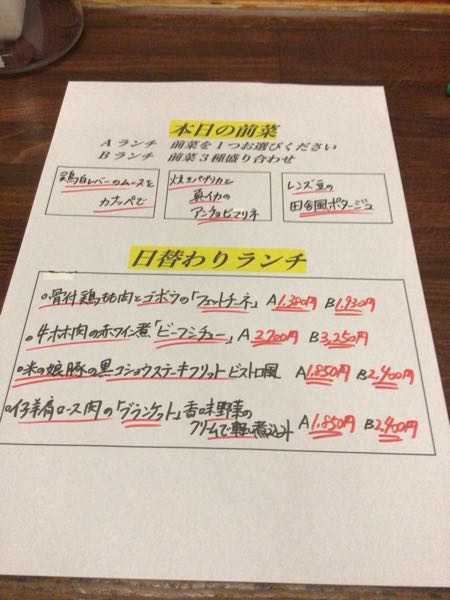 本日の前菜
Aランチ 前菜を1つお選びください
Bランチ 前菜3種盛り合わせ
鶏白レバーのムースを
カナッペで
焼きパプリカと
真イカの
アンチョビマリネ
レンズ豆の
田舎風ポタージュ
日替わりランチ
○骨付鶏もも肉とゴボウの「フェットチーネ」 A1,380円 B1,930円
○牛ホホ肉の赤ワイン煮「ビーフシチュー」 A2,700円 B3,250円
○米の娘豚の黒コショウステーキフリットビストロ風 A1,850円 B2,400円
○仔羊肩ロース肉の「ブランケット」香味野菜の
クリームで軽い煮込み A1,850円 B2,400円